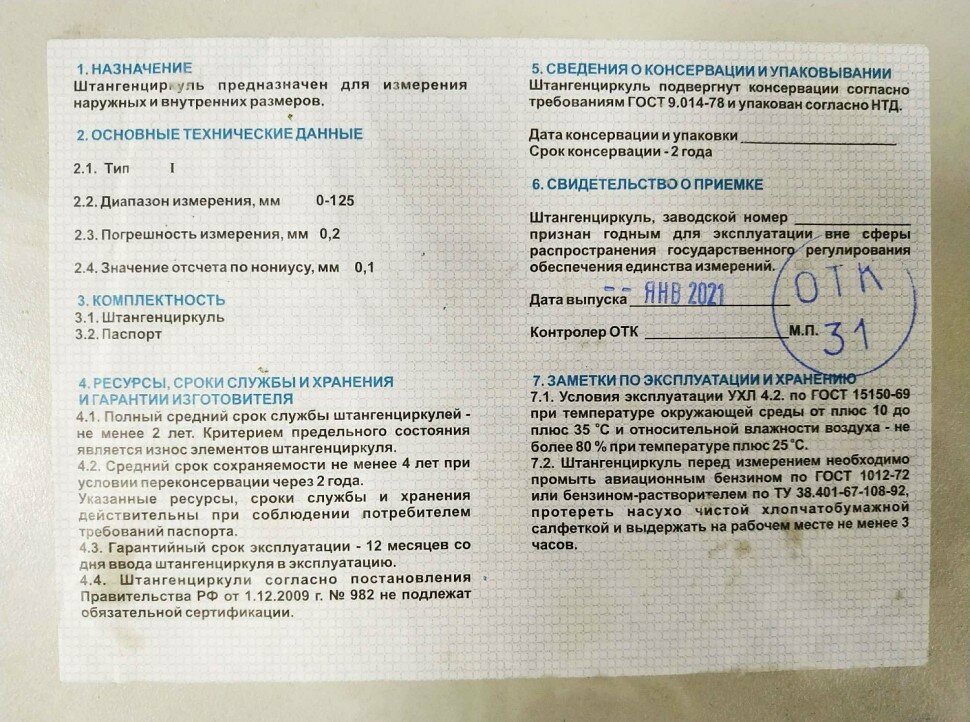 1. НАЗНАЧЕНИЕ
Штангенциркуль предназначен для измерения
наружных и внутренних размеров.
2. ОСНОВНЫЕ ТЕХНИЧЕСКИЕ ДАННЫЕ
2.1. Тип I
2.2. Диапазон измерения, мм 0-125
2.3. Погрешность измерения, мм 0,2
2.4. Значение отсчета по нониусу, мм 0,1
3. КОМПЛЕКТНОСТЬ
3.1. Штангенциркуль
3.2. Паспорт
4. РЕСУРСЫ, СРОКИ СЛУЖБЫ И ХРАНЕНИЯ
И ГАРАНТИИ ИЗГОТОВИТЕЛЯ
4.1. Полный средний срок службы штангенциркулей -
не менее 2 лет. Критерием предельного состояния
является износ элементов штангенциркуля.
4.2. Средний срок сохраняемости не менее 4 лет при
условии переконсервации через 2 года.
Указанные ресурсы, сроки службы и хранения
действительны при соблюдении потребителем
требований паспорта.
4.3. Гарантийный срок эксплуатации - 12 месяцев со
дня ввода штангенциркуля в эксплуатацию.
4.4. Штангенциркули согласно постановления
Правительства РФ от 1.12.2009 г. № 982 не подлежат
обязательной сертификации.
5. СВЕДЕНИЯ О КОНСЕРВАЦИИ И УПАКОВЫВАНИИ
Штангенциркуль подвергнут консервации согласно
требованиям ГОСТ 9.014-78 и упакован согласно НТД.
Дата консервации и упаковки
Срок консервации - 2 года
6. СВИДЕТЕЛЬСТВО О ПРИЕМКЕ
Штангенциркуль, заводской номер
признан годным для эксплуатации вне сферы
распространения государственного регулирования
обеспечения единства измерений.
Дата выпуска -- ЯНВ 2021
Контролер ОТК М.П.
ОТК
31
7. ЗАМЕТКИ ПО ЭКСПЛУАТАЦИИ И ХРАНЕНИЮ
7.1. Условия эксплуатации УХЛ 4.2. по ГОСТ 15150-69
при температуре окружающей среды от плюс 10 до
плюс 35 °С и относительной влажности воздуха - не
более 80 % при температуре плюс 25 °С.
7.2. Штангенциркуль перед измерением необходимо
промыть авиационным бензином по ГОСТ 1012-72
или бензином-растворителем по ТУ 38.401-67-108-92,
протереть насухо чистой хлопчатобумажной
салфеткой и выдержать на рабочем месте не менее 3
часов.